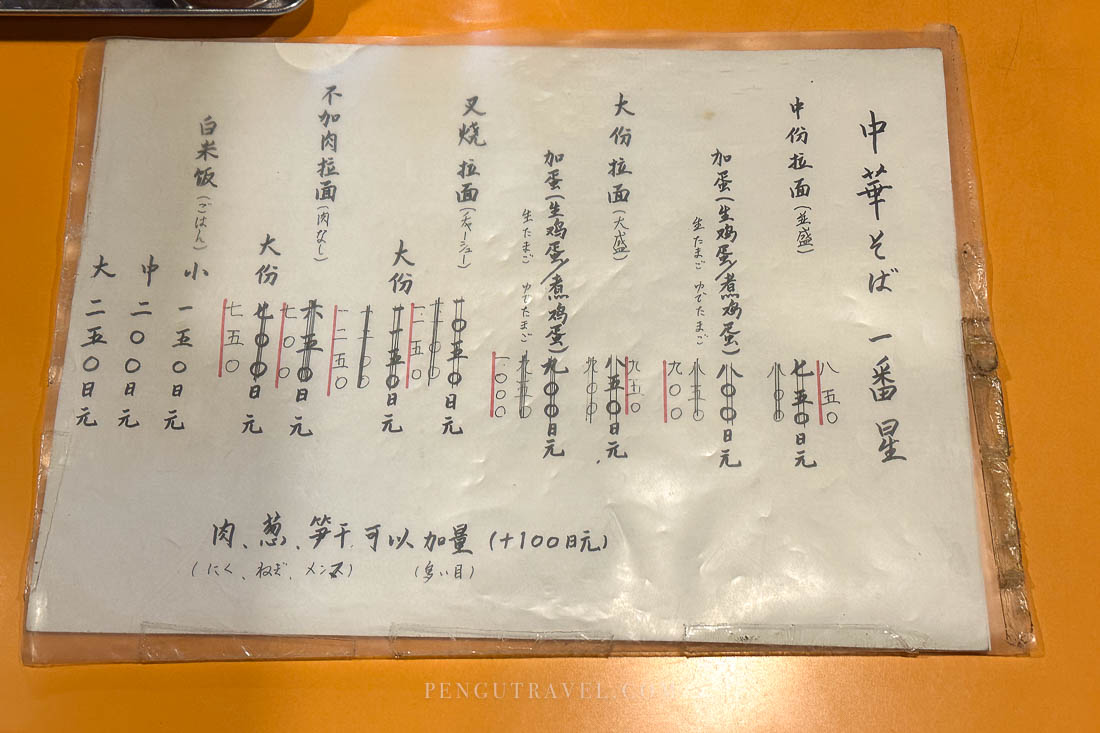 中華そば 一番星
八五〇
中份拉面(並盛) 七五〇日元
八〇〇
加蛋(生鸡蛋/煮鸡蛋)八〇〇日元
生たまご ゆでたまご 八五〇
九〇〇
九五〇
大份拉面(大盛) 八五〇日元
九〇〇
加蛋(生鸡蛋/煮鸡蛋)九〇〇日元
生たまご ゆでたまご 九五〇
一〇〇〇
叉烧拉面(チャーシュー) 一〇五〇日元
一一〇〇
一一五〇
大份 一一五〇日元
一二〇〇
一二五〇
不加肉拉面(肉なし) 六五〇日元
七〇〇
大份 七〇〇日元
七五〇
白米饭(ごはん) 小 一五〇日元
中 二〇〇日元
大 二五〇日元
肉、葱、笋干可以加量(+100日元)
(にく、ねぎ、メンマ) (多い目)